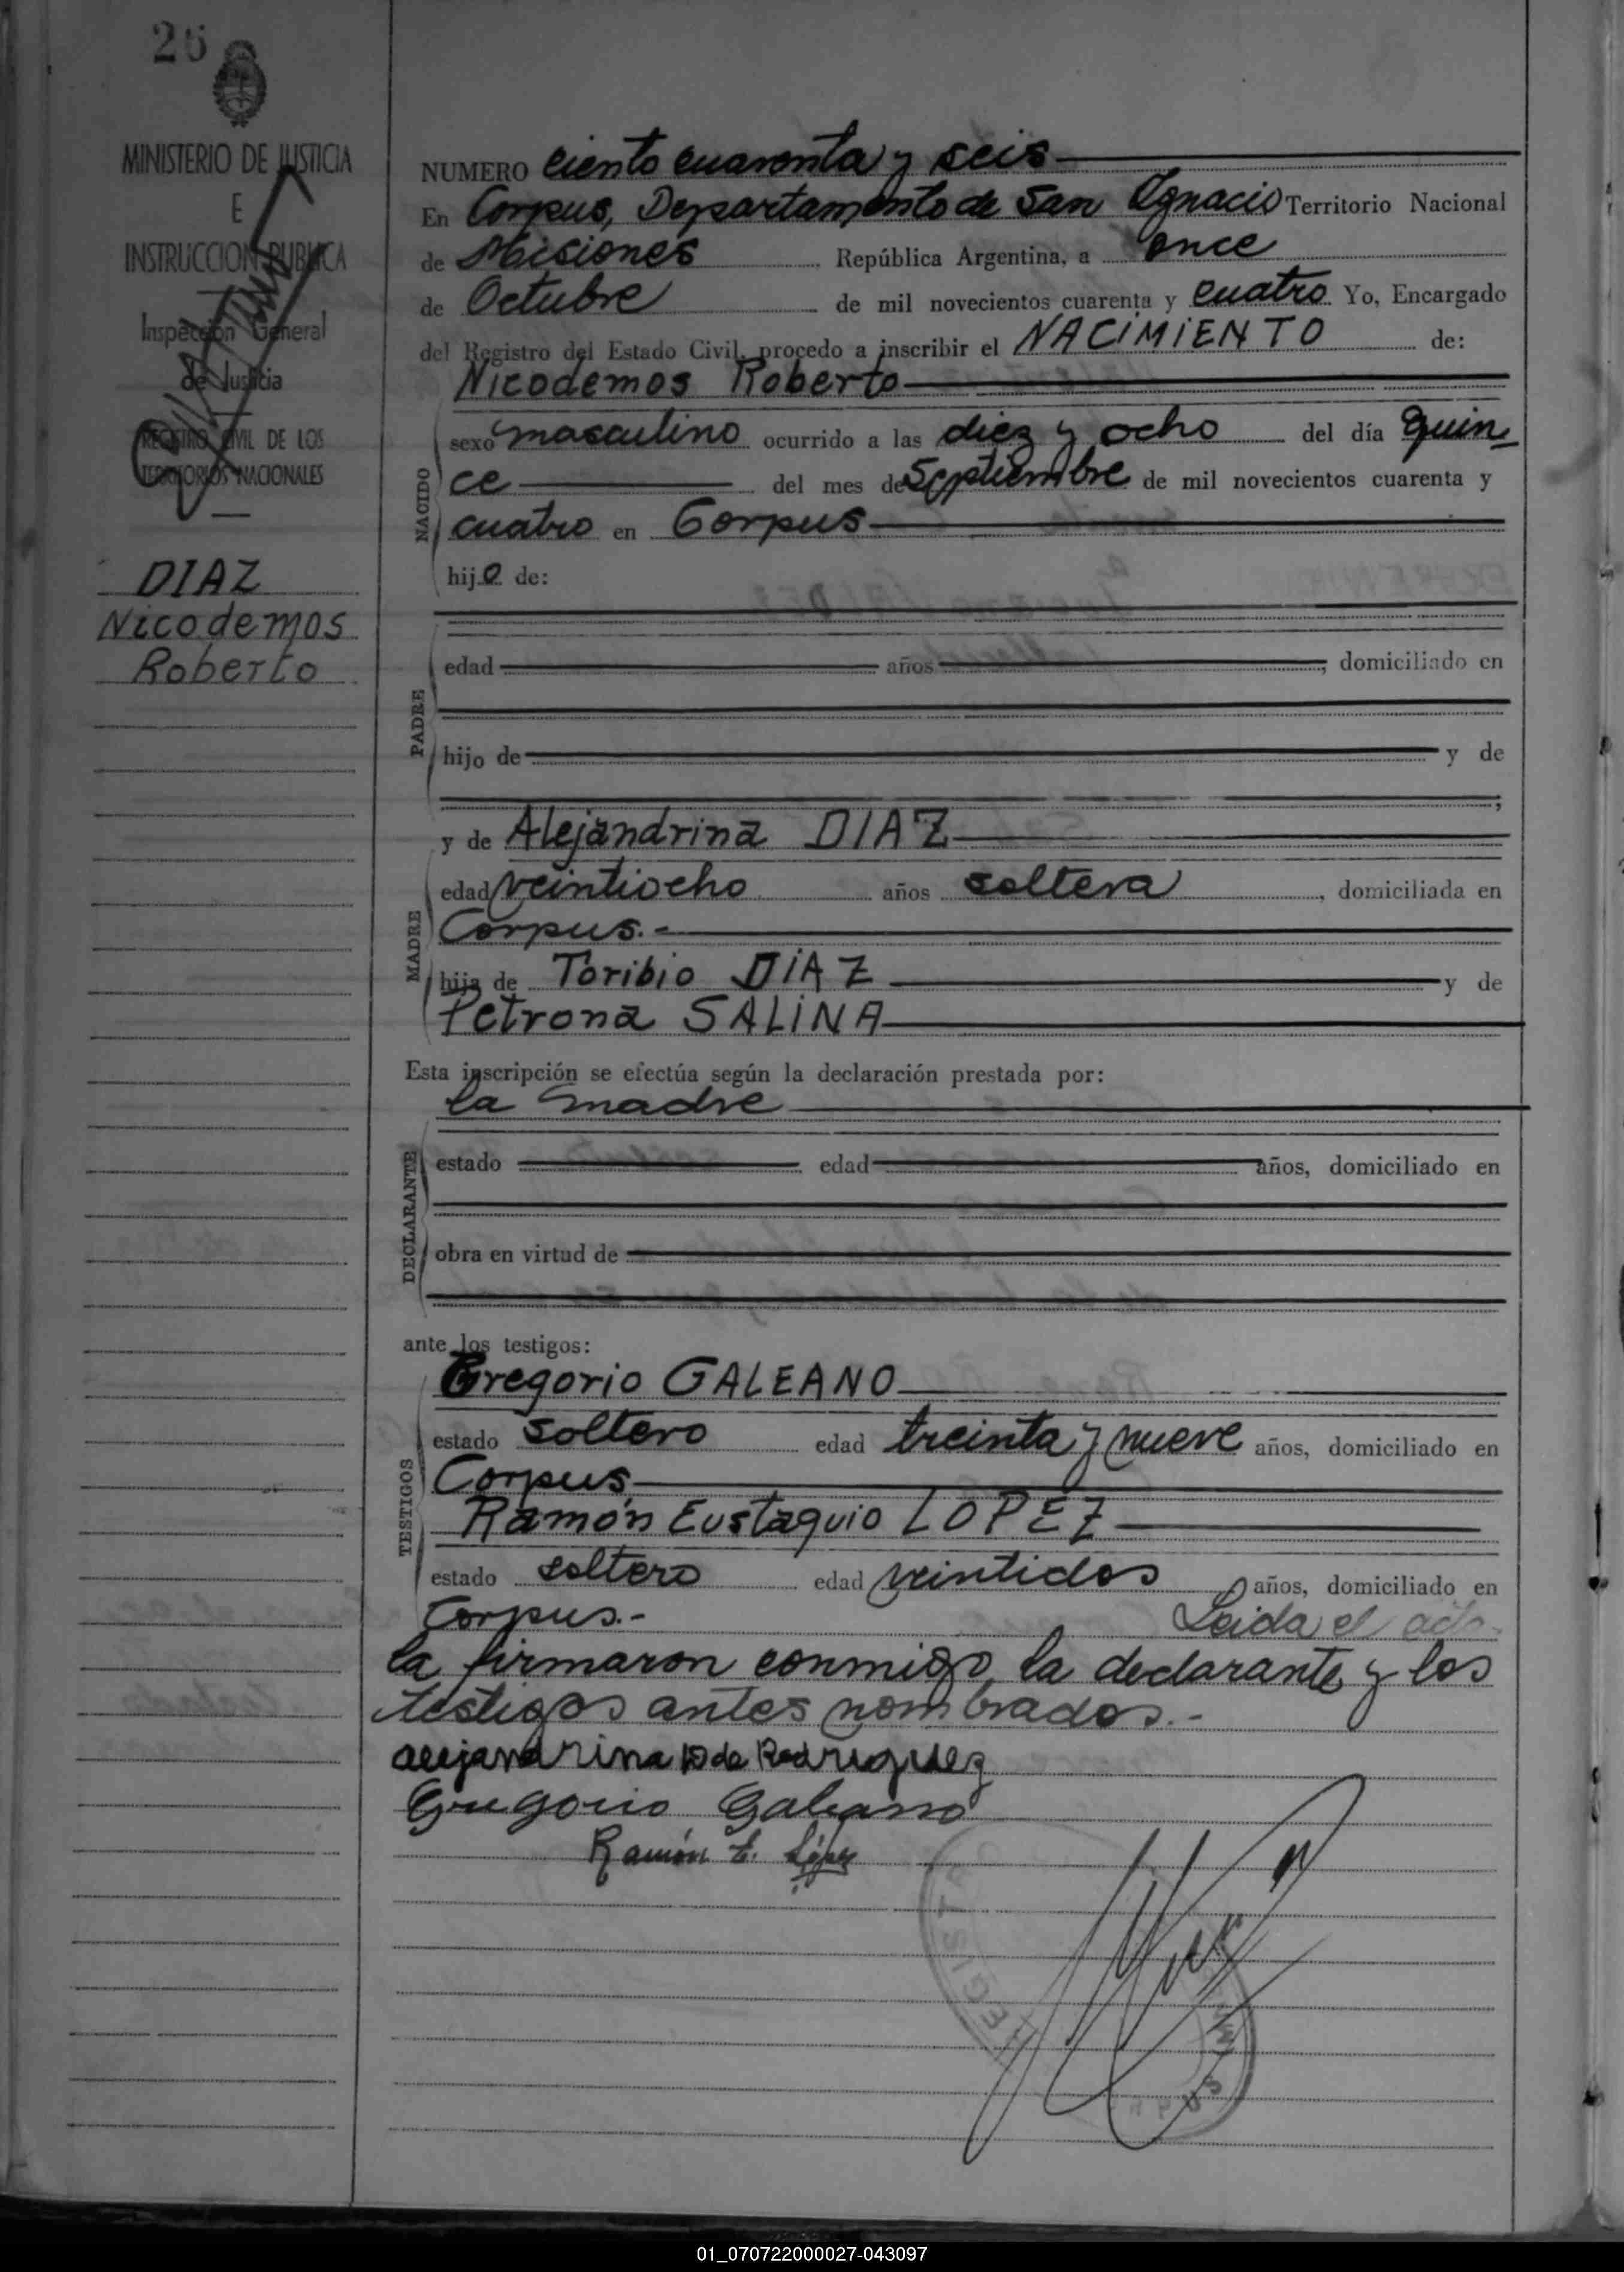 26
MINISTERIO DE JUSTICIA
E
INSTRUCCION PUBLICA
Inspección General
de Justicia
REGISTRO CIVIL DE LOS
TERRITORIOS NACIONALES
DIAZ
Nicodemos
Roberto
NUMERO ciento cuarenta y seis
En Corpus, Departamento de San Ignacio Territorio Nacional
de Misiones República Argentina, a once
de Octubre de mil novecientos cuarenta y cuatro Yo, Encargado
del Registro del Estado Civil, procedo a inscribir el NACIMIENTO de:
Nicodemos Roberto
NACIDO
sexo masculino ocurrido a las diez y ocho del día quin
ce del mes de Septiembre de mil novecientos cuarenta y
cuatro en Corpus
hijo de:
PADRE
edad años , domiciliado en
hijo de y de
;
y de Alejandrina DIAZ
MADRE
edad veintiocho años soltera , domiciliada en
Corpus.-
hija de Toribio DIAZ y de
Petrona SALINA
Esta inscripción se efectúa según la declaración prestada por:
la madre
DECLARANTE
estado edad años, domiciliado en
obra en virtud de
ante los testigos:
Gregorio GALEANO
TESTIGOS
estado soltero edad treinta y nueve años, domiciliado en
Corpus,
Ramón Eustaquio LOPEZ
estado soltero edad veintidos años, domiciliado en
Corpus.- Leida el acta
la firmaron conmigo la declarante y los
testigos antes nombrados.-
alejandrina D de Rodriguez
Gregorio Galeano
Ramón E. López
01_070722000027-043097